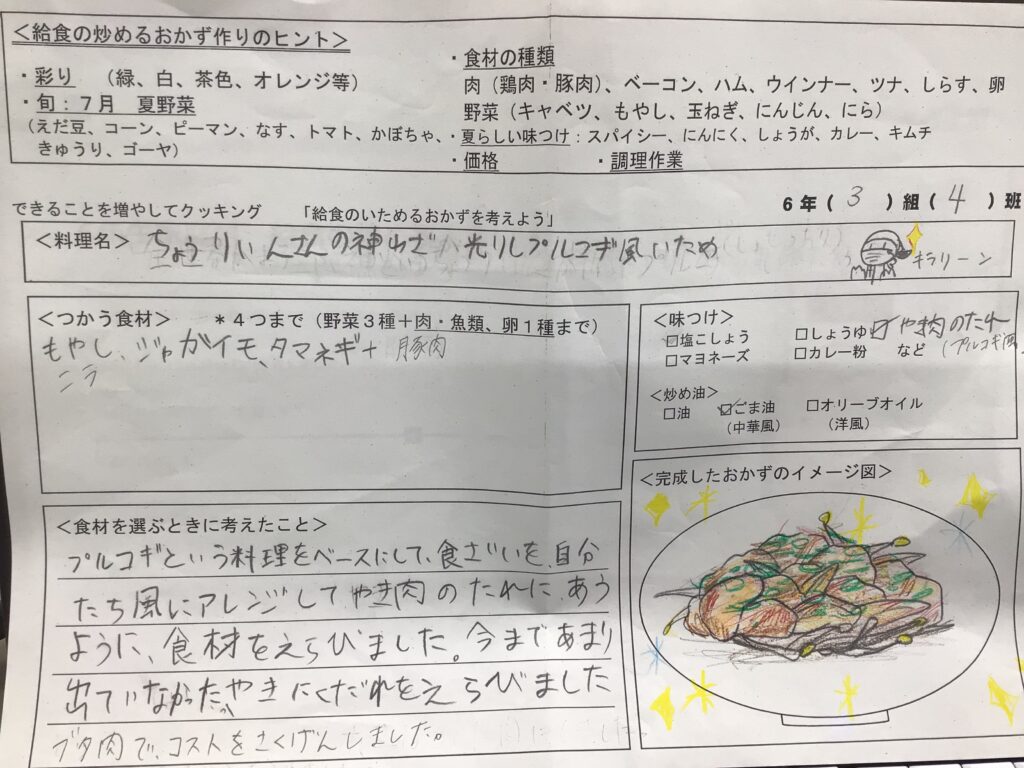 ＜給食の炒めるおかず作りのヒント＞
・彩り　（緑、白、茶色、オレンジ等）
・旬：７月　夏野菜
（えだ豆、コーン、ピーマン、なす、トマト、かぼちゃ、
きゅうり、ゴーヤ）
・食材の種類
肉（鶏肉・豚肉）、ベーコン、ハム、ウインナー、ツナ、しらす、卵
野菜（キャベツ、もやし、玉ねぎ、にんじん、にら）
・夏らしい味つけ：スパイシー、にんにく、しょうが、カレー、キムチ
・価格　　・調理作業
６年（３）組（４）班
できることを増やしてクッキング　「給食のいためるおかずを考えよう」
＜料理名＞ ちょうりいんさんの神わざ 光りしプルコギ風いため
キラリーン
＜つかう食材＞　＊４つまで（野菜３種＋肉・魚類、卵１種まで）
もやし、ジャガイモ、タマネギ＋豚肉
ニラ
＜味つけ＞
☑塩こしょう　□しょうゆ ☑やき肉のたれ
□マヨネーズ　□カレー粉　など （プルコギ風
＜炒め油＞
□油　☑ごま油　□オリーブオイル
（中華風）　（洋風）
＜食材を選ぶときに考えたこと＞
プルコギという料理をベースにして、食ざいを、自分
たち風にアレンジして やき肉のたれに、あう
ように、食材をえらびました。今まであまり
出ていなかったやきにくだれをえらびました
ブタ肉で、コストをさくげんしました。
＜完成したおかずのイメージ図＞